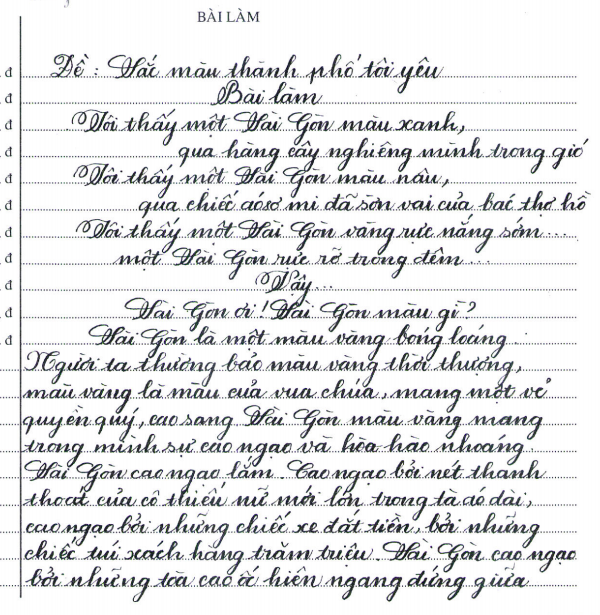 BÀI LÀM
Đề : Sắc màu thành phố tôi yêu
đ
Bài làm
đ
Tôi thấy một Sài Gòn màu xanh,
đ
qua hàng cây nghiêng mình trong gió
đ
Tôi thấy một Sài Gòn màu nâu,
đ
qua chiếc áo sơ mi đã sờn vai của bác thợ hồ
đ
Tôi thấy một Sài Gòn vàng rực nắng sớm...
đ
một Sài Gòn rực rỡ trong đêm...
đ
Vậy...
đ
Sài Gòn ơi! Sài Gòn màu gì?
đ
Sài Gòn là một màu vàng bóng loáng.
đ
Người ta thường bảo màu vàng thời thượng,
màu vàng là màu của vua chúa, mang một vẻ
quyền quý, cao sang. Sài Gòn màu vàng mang
trong mình sự cao ngạo và hòa hào nhoáng.
Sài Gòn cao ngạo lắm. Cao ngạo bởi nét thanh
thoát của cô thiếu nữ mới lớn trong tà áo dài,
cao ngạo bởi những chiếc xe đắt tiền, bởi những
chiếc túi xách hàng trăm triệu. Sài Gòn cao ngạo
bởi những tòa cao ốc hiên ngang đứng giữa